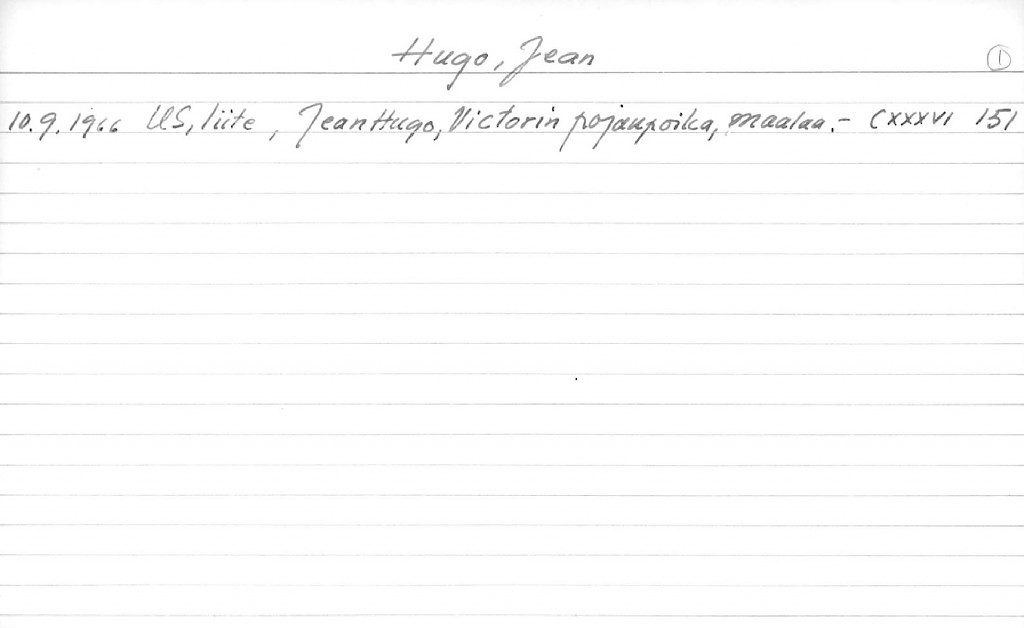 Hugo, Jean 1
10.9.1966 US, liite, Jean Hugo, Victorin pojanpoika, maalaa.- CXXXVI 151